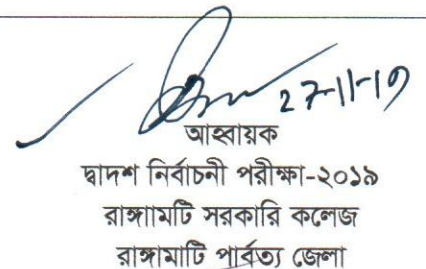 27-11-19
আহ্বায়ক
দ্বাদশ নির্বাচনী পরীক্ষা-২০১৯
রাঙ্গাামটি সরকারি কলেজ
রাঙ্গামাটি পার্বত্য জেলা